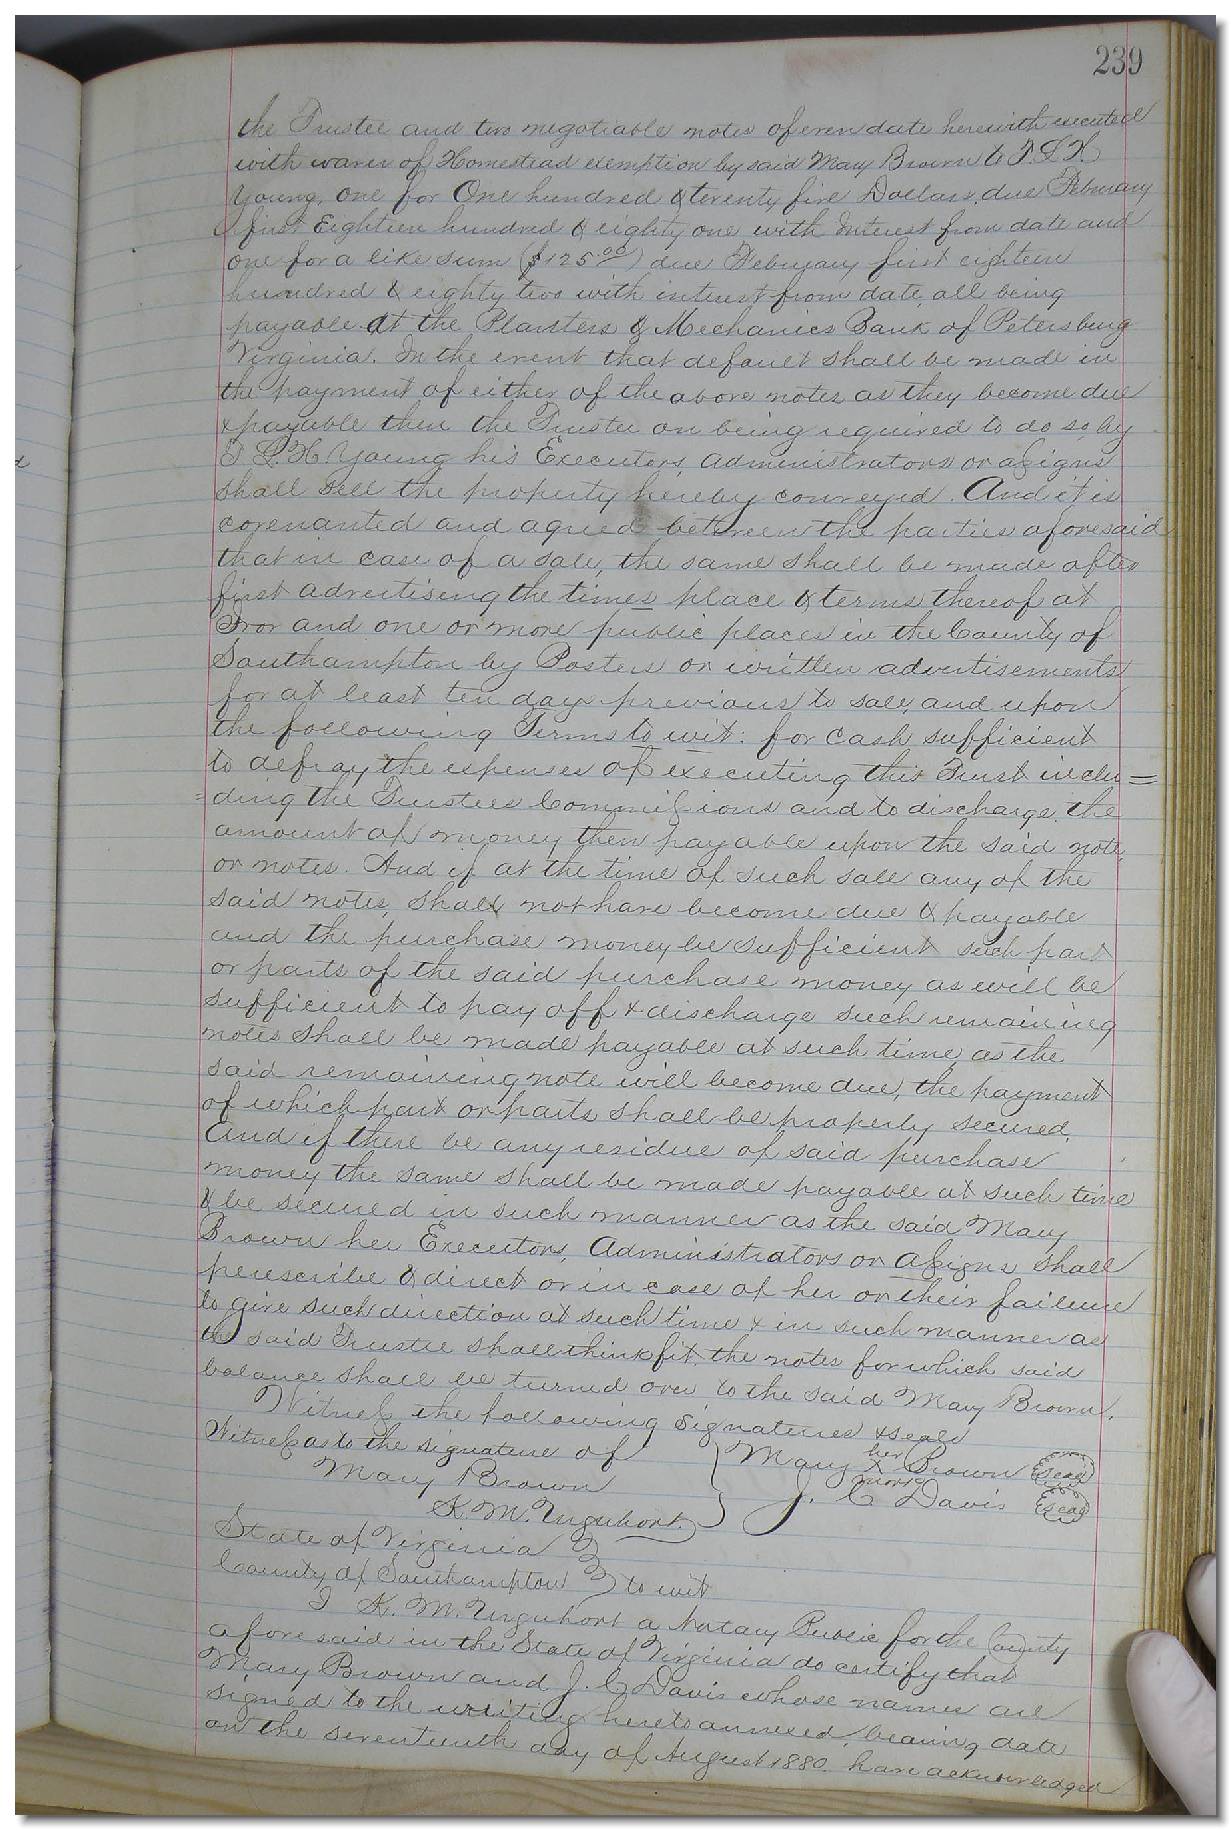 239
the Trustee and two negotiable notes of even date herewith executed
with waver of Homestead exemption by said Mary Brown to
Young, one for One hundred & twenty five Dollars, due February
first Eighteen hundred & eighty one with Interest from date and
one for a like sum ($125.00) due February first eighteen
hundred & eighty two with interest from date, all being
payable at the Planters & Mechanics Bank of Petersburg
Virginia. In the event that default shall be made in
the payment of either of the above notes as they become due
& payable then the Trustee on being required to do so, by
Young his Executors, Administrators or assigns
shall sell the property hereby conveyed. And it is
covenanted and agreed between the parties aforesaid
that in case of a sale, the same shall be made after
first advertising the times place & terms thereof at
Ivor and one or more public places in the County of
Southampton by Posters or written advertisements
for at least ten days previous to sale, and upon
the following Terms to wit: for cash sufficient
to defray the expenses of executing this Trust inclu=
=ding the Trustees Commissions and to discharge the
amount of money then payable upon the said note
or notes. And if at the time of such sale any of the
said notes, shall not have become due & payable
and the purchase money be sufficient such part
or parts of the said purchase money as will be
sufficient to pay off & discharge such remaining
notes shall be made payable at such time as the
said remaining note will become due, the payment
of which part or parts shall be properly secured.
And if there be any residue of said purchase
money the same shall be made payable at such time
& be secured in such manner as the said Mary
Brown her Executors, Administrators or assigns shall
perescribe & direct or in case of her or their failure
to give such direction at such time & in such manner as
the said Trustee shall think fit, the notes for which said
balance shall be turned over to the said Mary Brown.
Witness the following Signatures & seals
Witness as to the signature of } Mary her X mark Brown (Seal)
Mary Brown } J. C Davis (Seal)
K. M. Urquhart.
State of Virginia }
County of Southampton } to wit
I K. M. Urquhart a Notary Public for the County
aforesaid in the State of Virginia do certify that
Mary Brown and J. C Davis whose names are
signed to the writing hereto annexed, bearing date
on the seventeenth day of August 1880. have acknowledged